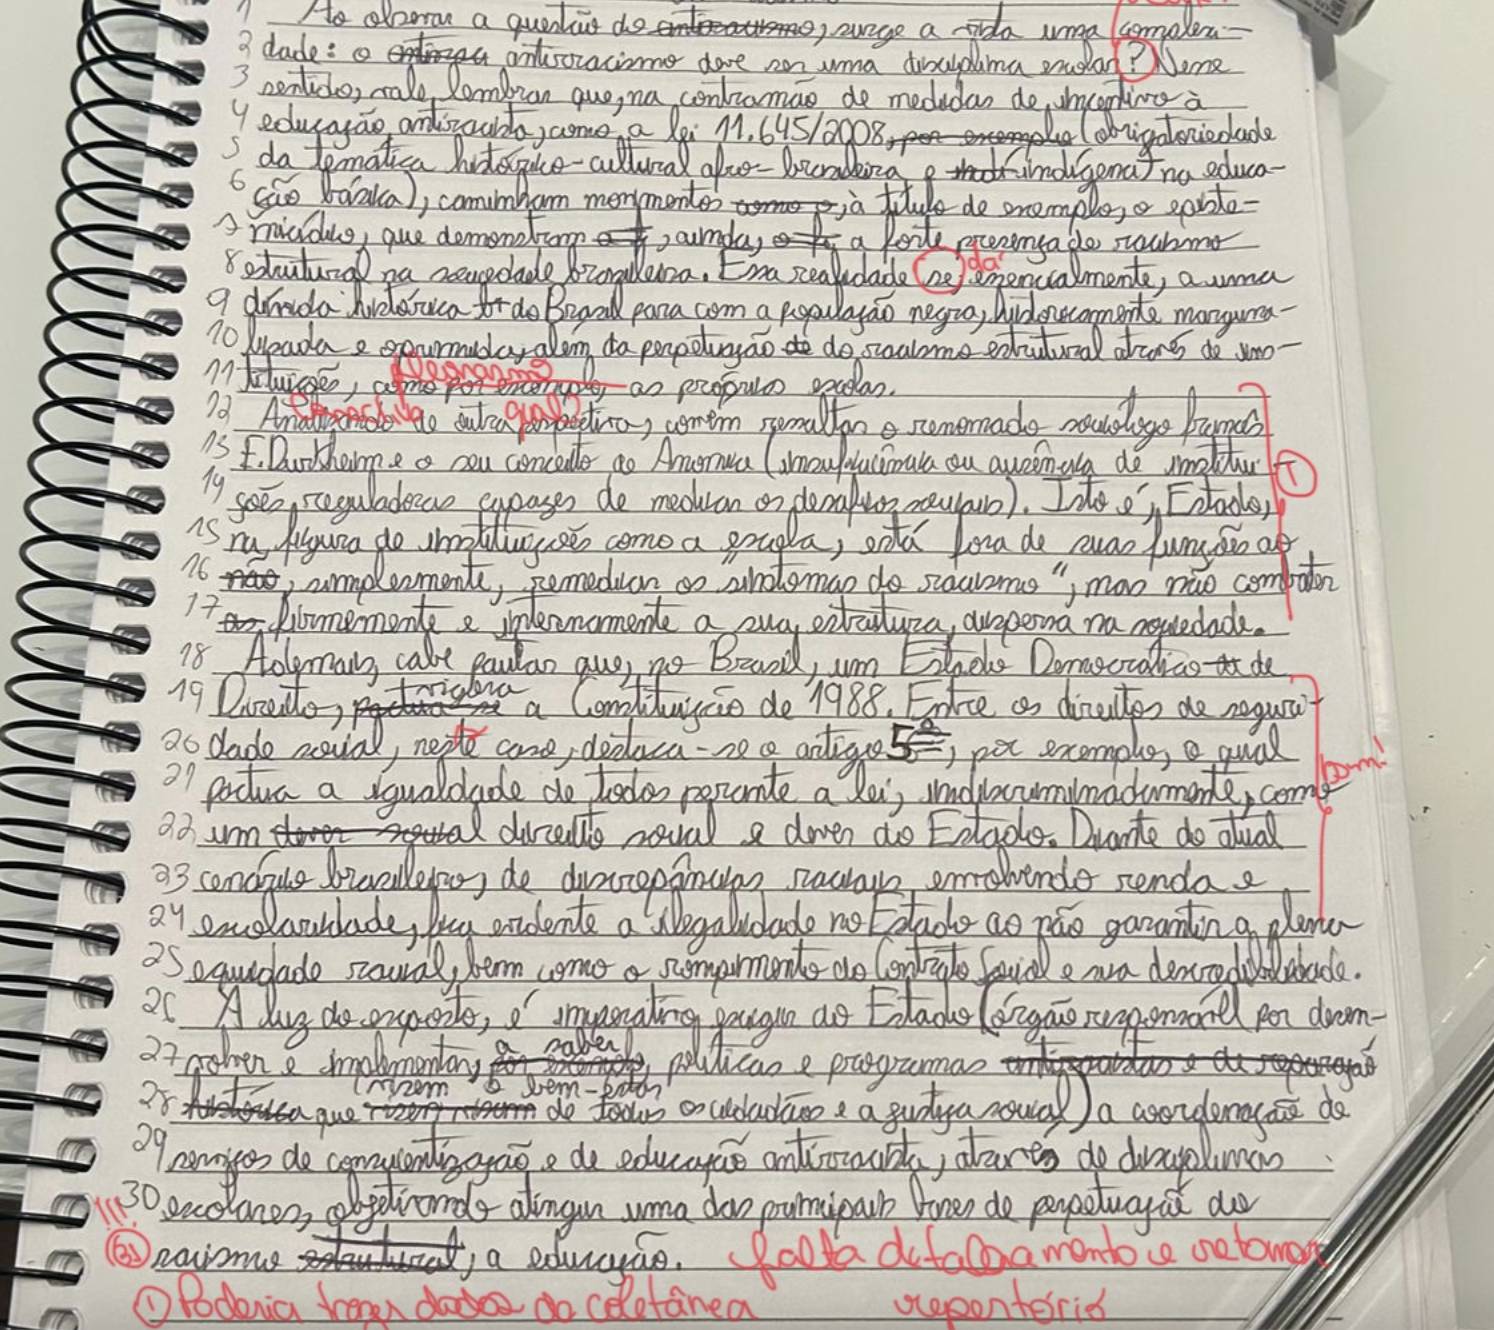 1 Ao observar a questão do antirracismo, surge a vida uma complexi-
2 dade: o antiraça antirracismo deve ser uma disciplina escolar? Nesse
3 sentido, vale lembrar que, na contramão de medidas de incentivo à
4 educação antirracista, como a lei 11.645/2008, por exemplo (obrigatoriedade
5 da temática histórico-cultural afro-brasileira e indígena) na educa-
6 ção básica), caminham movimentos como o, à título de exemplo, o episte-
7 micídio, que demonstram, ainda, a forte presença de racismo
8 estrutural na sociedade brasileira. Essa realidade se, dá essencialmente, a uma
9 dívida histórica do Brasil para com a população negra, historicamente margina-
10 lizada e oprimida, além da perpetuação de do racismo estrutural através de ins-
pleonasmo
11 tituições, como por exemplo, as próprias escolas.
Conectivo qual?
12 Analisando de outra perspectiva, convém ressaltar o renomado sociólogo francês
13 E. Durkheim e o seu conceito de Anomia (insuficiência ou ausência de institui-
1
14 ções reguladoras capazes de mediar os desafios sociais). Isto é, Estado,
15 na figura de instituições como a escola, está fora de suas funções ao
16 não, simplesmente, remediar os "sintomas do racismo", mas não combater
17 firmemente e internamente a sua estrutura, dispersa na sociedade.
18 Ademais, cabe pautar que, no Brasil, um Estado Democrático de
19 Direito, vigora a Constituição de 1988. Entre os direitos de seguri-
20 dade social, neste caso, destaca-se o artigo 5º, por exemplo, o qual
bom!
21 pactua a igualdade de todos perante a lei, indiscriminadamente, como
22 um dever social direito social e dever do Estado. Diante do atual
23 cenário brasileiro, de discrepâncias raciais envolvendo renda e
24 escolaridade, fica evidente a ilegalidade no Estado ao não garantir a plena
25 equidade racial, bem como o rompimento do Contrato Social e sua descredibilidade.
26 A luz do exposto, é imperativo exigir do Estado (órgão responsável por desen-
27 volver e implementar, a saber, por exemplo, políticas e programas antirracistas e de reparação
28 histórica que visem o bem-estar de todos os cidadãos e a justiça social) a coordenação de
29 serviços de conscientização e de educação antirracista, através de disciplinas
30 escolares, objetivando atingir uma das principais bases de perpetuação do
!!! 31 racismo estrutural, a educação. falta detalhamento e retomar
① Poderia trazer dados da coletânea repertório